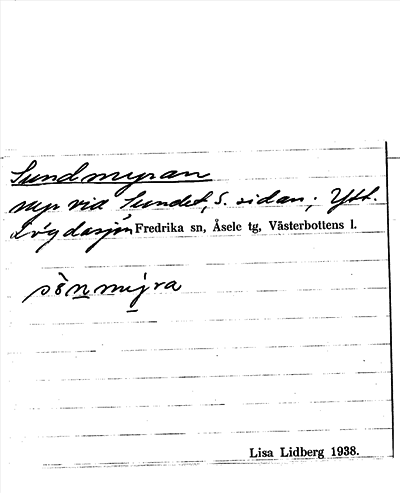 Sundmyran
myr vid Sundet, s. sidan; Ytt.
Lögdasjön Fredrika sn, Åsele tg, Västerbottens l.
sònmýra
Lisa Lidberg 1938.